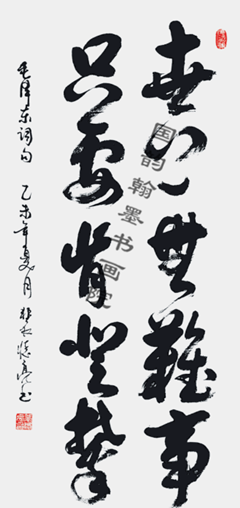 世上無難事
只要肯登攀
毛泽东词句 乙未年夏月
国韵翰墨书画院